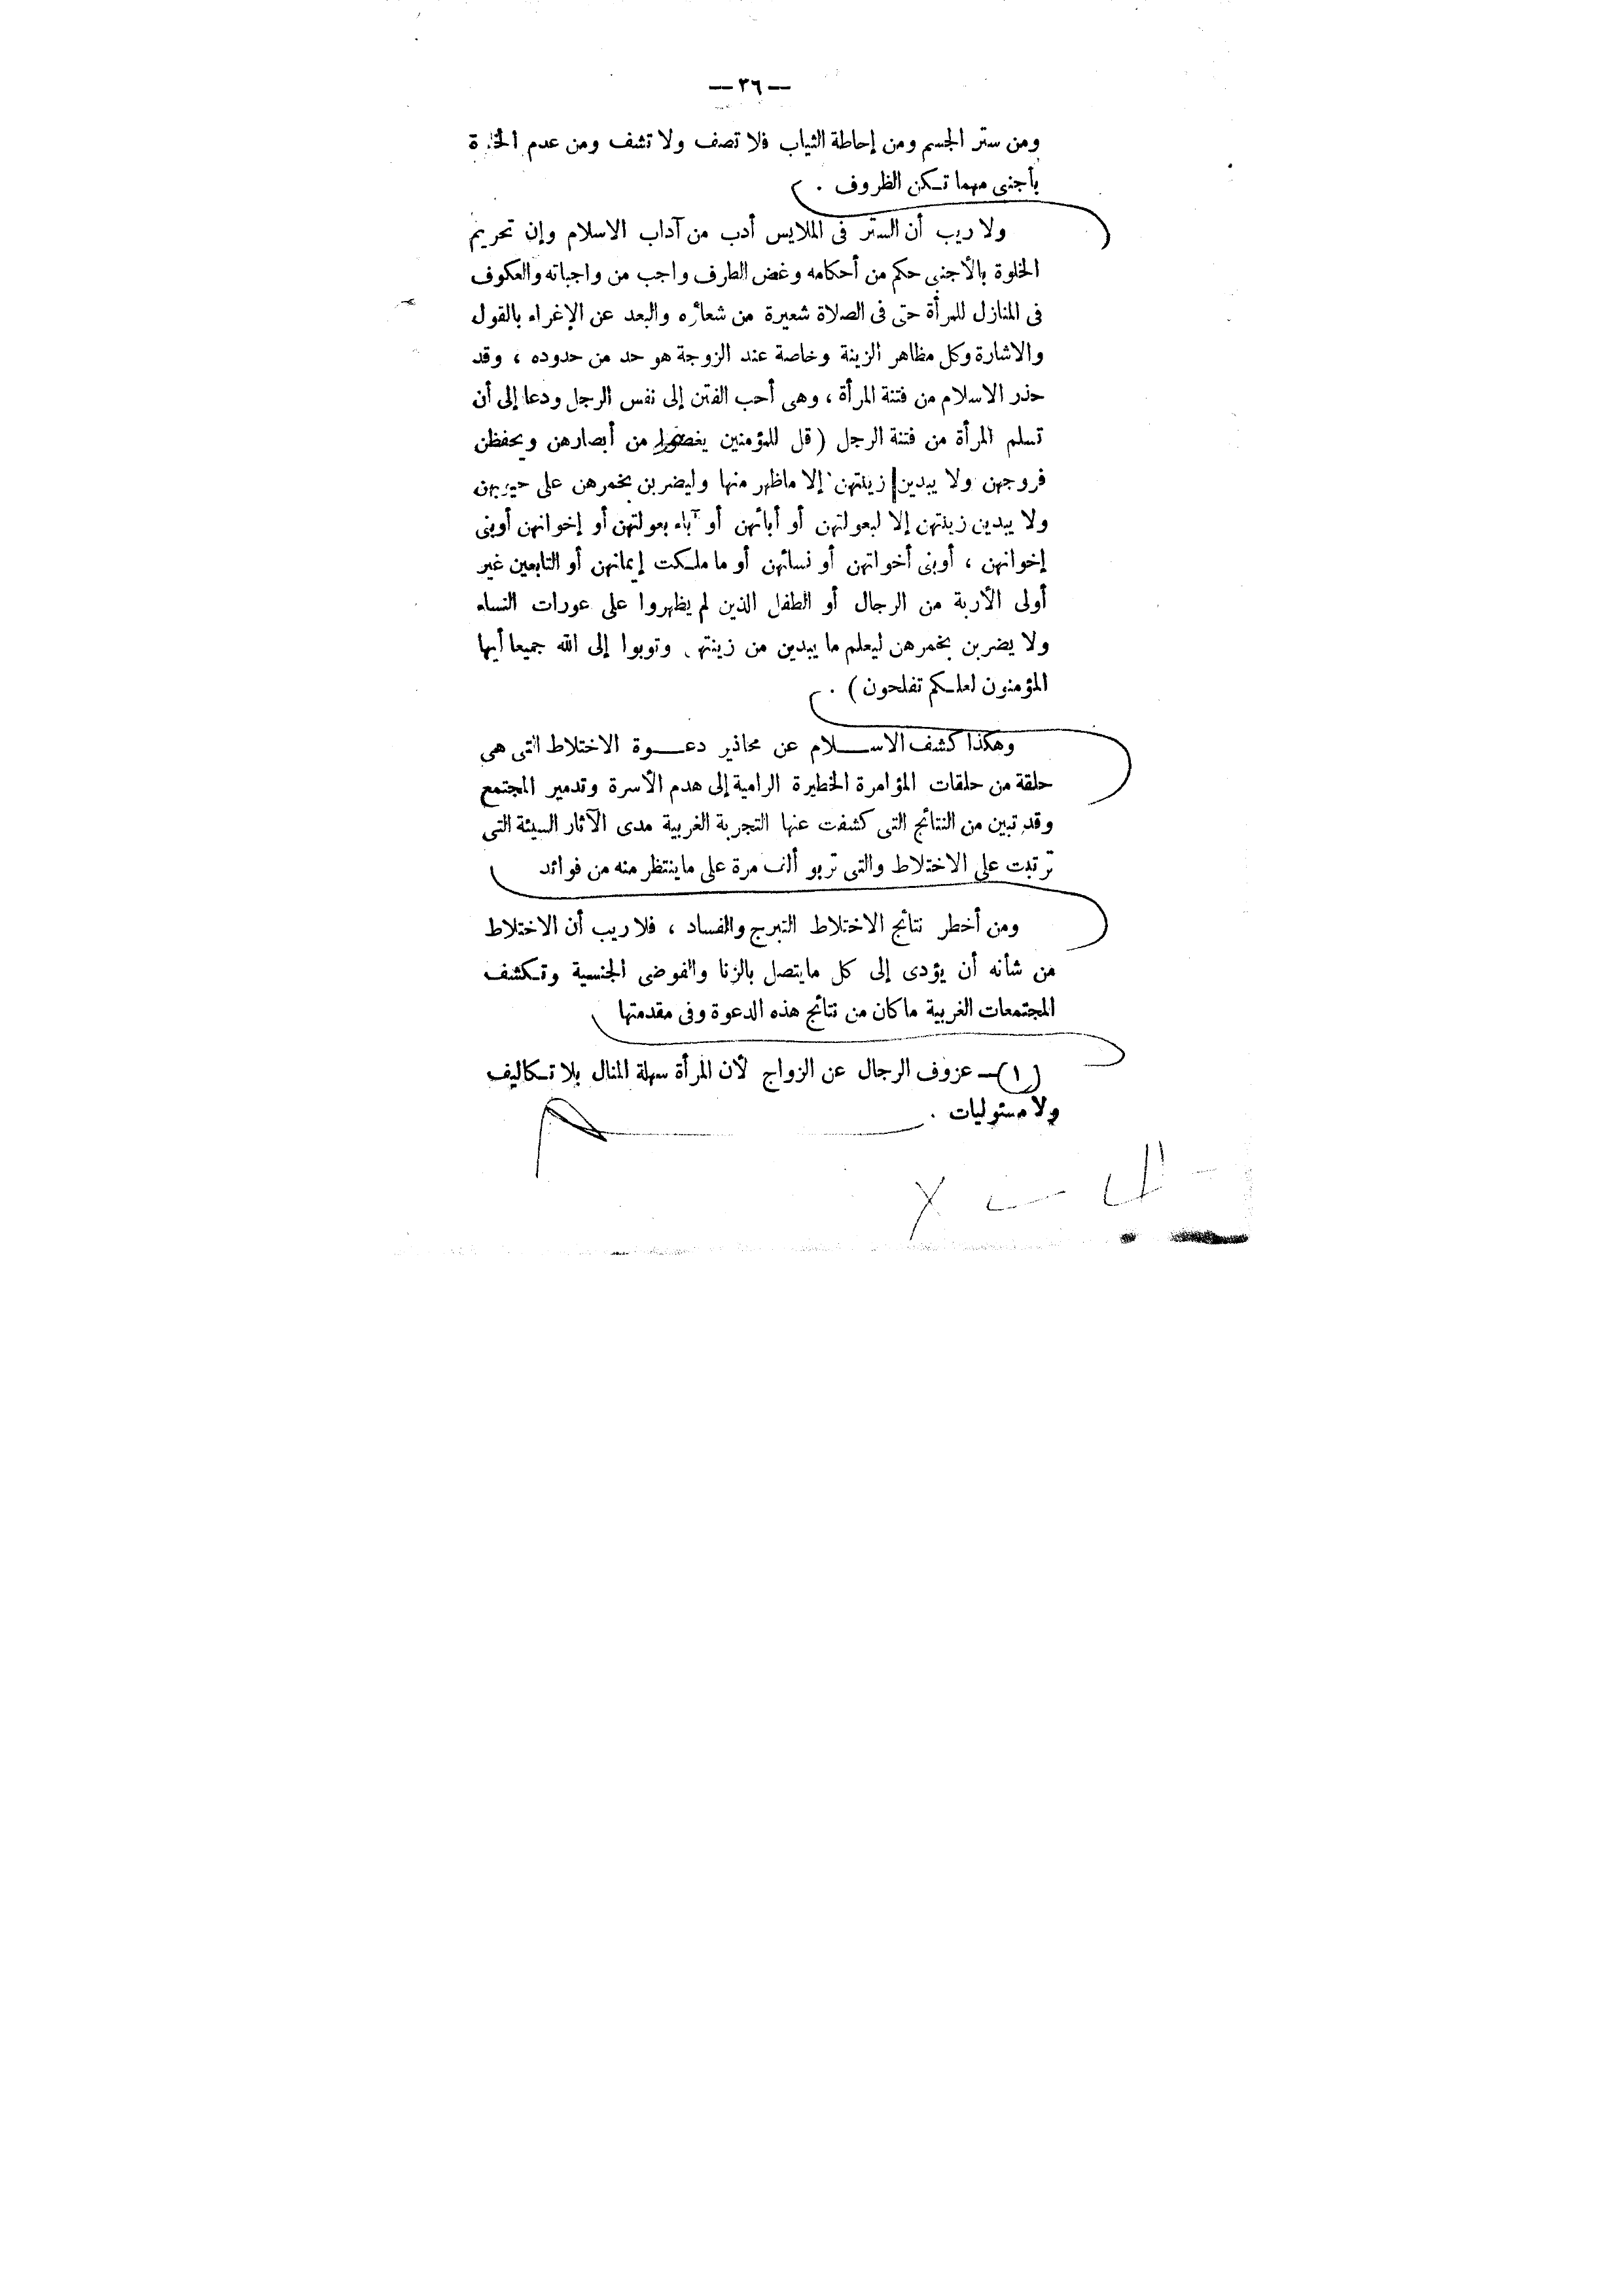 — ٣٦ —
ومن ستر الجسم ومن إحاطة الثياب فلا تصف ولا تشف ومن عدم
بأجنبى مهما تكن الظروف .
ولا ريب أن الستر فى الملابس أدب من آداب الاسلام وإن تحريم
الخلوة بالأجنبى حكم من أحكامه وغض الطرف واجب من واجباته والعكوف
فى المنازل للمرأة حتى فى الصلاة شعيرة من شعائره والبعد عن الإغراء بالقول
والاشارة وكل مظاهر الزينة وخاصة عند الزوجة هو حد من حدوده ، وقد
حذر الاسلام من فتنة المرأة ، وهى أحب الفتن إلى نفس الرجل ودعا إلى أن
تسلم المرأة من فتنة الرجل ( قل للمؤمنين من أبصارهن ويحفظن
فروجهن ولا يبدين زينتهن إلا ماظهر منها وليضربن بخمرهن على جيوبهن
ولا يبدين زينتهن إلا لبعولتهن أو أبائهن أو آباء بعولتهن أو إخوانهن أوبنى
إخوانهن ، أوبنى أخواتهن أو نسائهن أو ما ملكت إيمانهن أو التابعين غير
أولى الأربة من الرجال أو الطفل الذين لم يظهروا على عورات النساء
ولا يضربن بخمرهن ليعلم ما يبدين من وتوبوا إلى الله جميعا أيها
المؤمنون لعلكم تفلحون ) .
وهكذا كشف الاســـلام عن محاذير دعـــوة الاختلاط التى هى
حلقة من حلقات المؤامرة الخطيرة الرامية إلى هدم الأسرة وتدمير المجتمع
وقد تبين من النتائج التى كشفت عنها التجربة الغربية مدى الآثار السيئة التى
ترتبت على الاختلاط والتى تربو ألف مرة على ماينتظر منه من فوائد
ومن أخطر نتائج الاختلاط التبرج والفساد ، فلا ريب أن الاختلاط
من شأنه أن يؤدى إلى كل مايتصل بالزنا والفوضى الجنسية وتكشف
المجتمعات الغربية ماكان من نتائج هذه الدعوة وفى مقدمتها
(١) — عزوف الرجال عن الزواج لأن المرأة سهلة المنال بلا تكاليف
ولا مسئوليات .